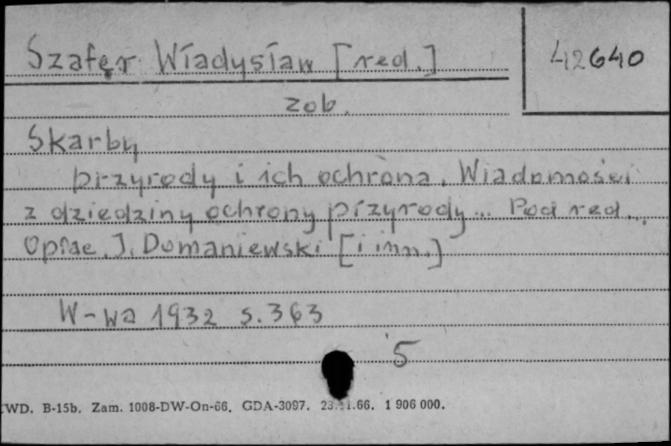 Szafer Władysław [red.]
42640
zob.
Skarby
przyrody i ich ochrona. Wiadomości
z dziedziny ochrony przyrody... Pod red...
Oprac. J. Domaniewski [i inn.]
W-wa 1932 s. 363
5
WD. B-15b. Zam. 1008-DW-On-66. GDA-3097. 1 906 000.